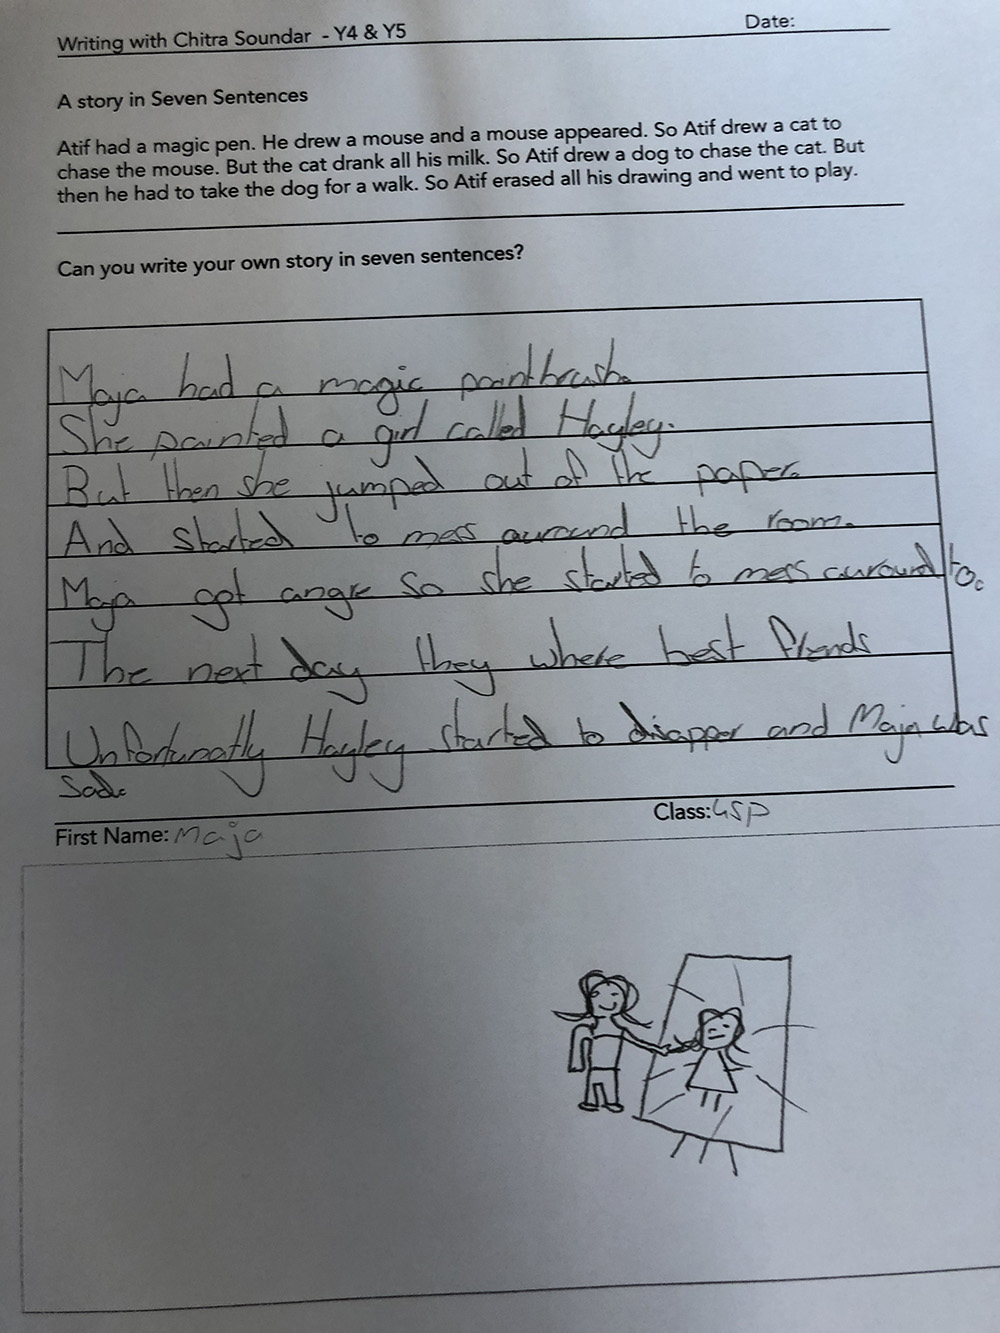 Writing with Chitra Soundar - Y4 & Y5 Date:
A story in Seven Sentences
Atif had a magic pen. He drew a mouse and a mouse appeared. So Atif drew a cat to
chase the mouse. But the cat drank all his milk. So Atif drew a dog to chase the cat. But
then he had to take the dog for a walk. So Atif erased all his drawing and went to play.
Can you write your own story in seven sentences?
Maja had a magic paintbrush.
She painted a girl called Hayley.
But then she jumped out of the paper.
And started to mess auround the room.
Maja got angre so she started to mess auround to.
The next day they where best friends
Unfortunatly Hayley started to disapper and Maja was
sad.
First Name: Maja Class: 4SP